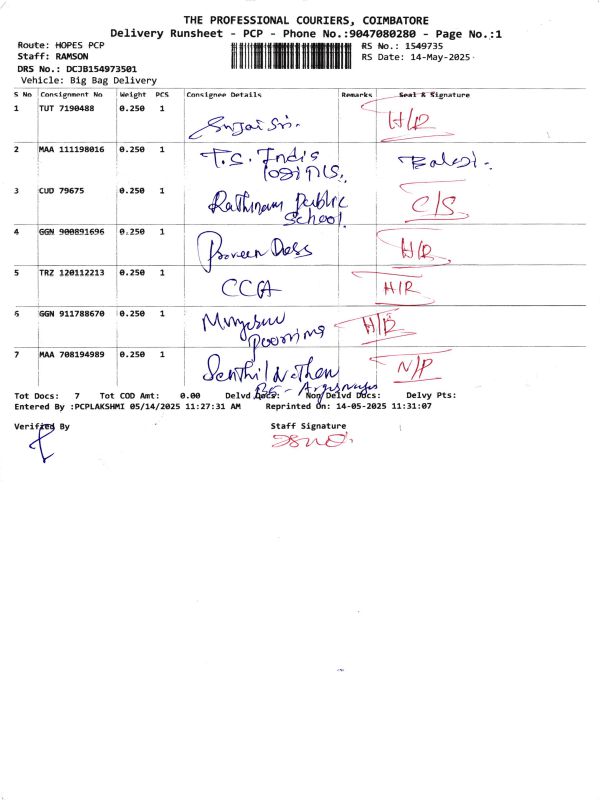 THE PROFESSIONAL COURIERS, COIMBATORE
Delivery Runsheet - PCP - Phone No.:9047080280 - Page No.:1
Route: HOPES PCP
RS No.: 1549735
Staff: RAMSON
RS Date: 14-May-2025
DRS No.: DCJB154973501
Vehicle: Big Bag Delivery
S No Consignment No Weight PCS Consignee Details Remarks Seal & Signature
1 TUT 7190488 0.250 1 H/R
2 MAA 111198016 0.250 1 T.S. India
3 CUD 79675 0.250 1 Rathinam Public C/S
School.
4 GGN 900891696 0.250 1 Praveen Dass H/R.
5 TRZ 120112213 0.250 1 CCA H/R
6 GGN 911788670 0.250 1
7 MAA 708194989 0.250 1 Senthil Nathan N/P
Tot Docs: 7 Tot COD Amt: 0.00 Delvd Docs: Non Delvd Docs: Delvy Pts:
Entered By :PCPLAKSHMI 05/14/2025 11:27:31 AM Reprinted On: 14-05-2025 11:31:07
Verified By Staff Signature